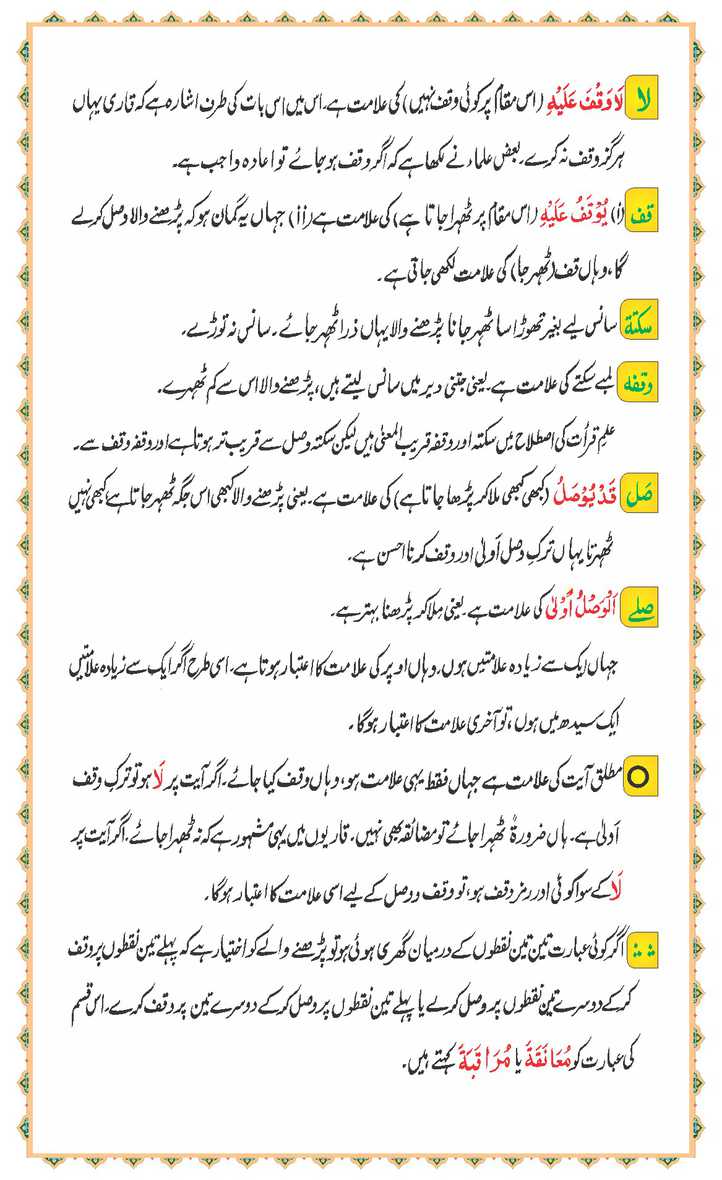 لا لَاوَقْفَ عَلَیْہِ (اس مقام پر کوئی وقف نہیں) کی علامت ہے۔ اس میں اس بات کی طرف اشارہ ہے کہ قاری یہاں
ہرگز وقف نہ کرے۔ بعض علماء نے لکھا ہے کہ اگر وقف ہوجائے تو اعادہ واجب ہے۔
قف (i) یُوْقَفُ عَلَیْہِ (اس مقام پر ٹھہرا جاتا ہے) کی علامت ہے (ii) جہاں یہ گمان ہو کہ پڑھنے والا وصل کرلے
گا، وہاں قف (ٹھہرجا) کی علامت لکھی جاتی ہے۔
سکتة سانس لیے بغیر تھوڑا سا ٹھہر جانا پڑھنے والا یہاں ذرا ٹھہر جائے۔ سانس نہ توڑے۔
وقفہ لمبے سکتے کی علامت ہے۔ یعنی جتنی دیر میں سانس لیتے ہیں، پڑھنے والا اس سے کم ٹھہرے۔
علمِ قرأت کی اصطلاح میں سکتہ اور وقفہ قریب المعنی ہیں لیکن سکتہ وصل سے قریب تر ہوتا ہے اور وقفہ وقف سے۔
صَل قَدْ یُوْصَلُ (کبھی کبھی ملاکر پڑھا جاتا ہے) کی علامت ہے۔ یعنی پڑھنے والا کبھی اس جگہ ٹھہر جاتا ہے کبھی نہیں
ٹھہرتا یہاں ترکِ وصل اَولیٰ اور وقف کرنا احسن ہے۔
صلے اَلْوَصْلُ اَوْلیٰ کی علامت ہے۔ یعنی مِلاکر پڑھنا بہتر ہے۔
جہاں ایک سے زیادہ علامتیں ہوں، وہاں اوپر کی علامت کا اعتبار ہوتا ہے۔ اسی طرح اگر ایک سے زیادہ علامتیں
ایک سیدھ میں ہوں، تو آخری علامت کا اعتبار ہوگا۔
O مطلق آیت کی علامت ہے جہاں فقط یہی علامت ہو، وہاں وقف کیا جائے۔ اگر آیت پر لَا ہو تو ترکِ وقف
اَولیٰ ہے۔ ہاں ضرورۃً ٹھہرا جائے تو مضائقہ بھی نہیں۔ قاریوں میں یہی مشہور ہے کہ نہ ٹھہرا جائے۔ اگر آیت پر
لَا کے سوا کوئی اور رمزِ وقف ہو، تو وقف و وصل کے لیے اسی علامت کا اعتبار ہوگا۔
∴ ∴ اگر کوئی عبارت تین تین نقطوں کے درمیان گھری ہوئی ہو تو پڑھنے والے کو اختیار ہے کہ پہلے تین نقطوں پر وقف
کرکے دوسرے تین نقطوں پر وصل کرلے یا پہلے تین نقطوں پر وصل کرکے دوسرے تین پر وقف کرے۔ اس قسم
کی عبارت کو مُعَانَقَةً یا مُرَاقَبَةً کہتے ہیں۔